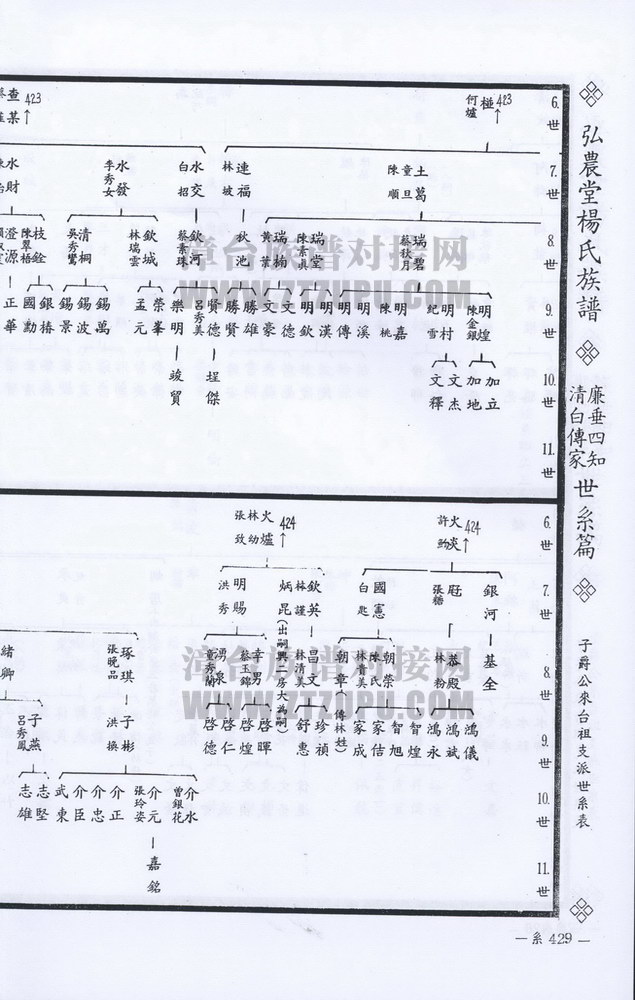 弘農堂楊氏族譜
廉垂四知
清白傳家
世系篇
子爵公來台祖支派世系表
6.世
7.世
8.世
9.世
10.世
11.世
423
何爐
土葛
童旦
陳順
連福
林坡
水交
白招
水發
李秀女
水財
瑞碧
蔡秋月
瑞堂
陳素真
瑞楊
黃葉
秋池
欽河
蔡春珠
欽城
林瑞雲
清桐
吳秀鸞
枝銓
陳翠梧
澄源
明煌
陳金銀
明村
紀雪
明嘉
陳桃
明溪
明傳
明漢
明欽
文德
文豪
勝雄
勝賢
賢德
呂秀美
樂明
榮峯
孟元
錫萬
錫波
錫景
銀椿
國勳
正華
加立
加地
文杰
文釋
埕傑
竣貿
423
查某
6.世
7.世
8.世
9.世
10.世
11.世
424
火炎
許勁
424
火爐
林幼
張致
銀河
冠
張糖
國憲
白匙
欽英
林謹
炳昆(出嗣興二房大為嗣)
明賜
洪秀
基全
恭殿
林粉
朝榮
陳氏
林寶美
朝章(傳林姓)
昌文
林清美
幸男
蔡玉錦
琢琪
張晚品
緒卿
鴻儀
鴻斌
鴻永
智煌
智旭
家佶
家成
珍禎
舒惠
啓暉
啓煌
啓仁
啓德
子彬
洪換
子燕
呂秀鳳
介水
曾銀花
介元
張玲姿
介正
介忠
介臣
武東
志堅
志雄
嘉銘
漳台族谱对接网
WWW.ZTZUPU.COM
漳台族谱对接网
WWW.ZTZUPU.COM
—系429—